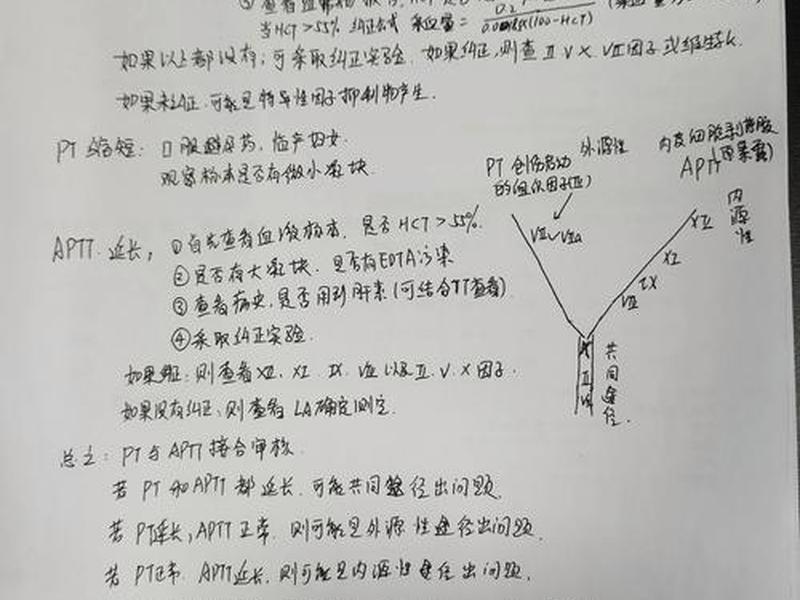 ③ 查看血
当HCT>55% 纠正公式 采血量= 0.00185×(100-HCT)
如果以上都没有;可采取纠正实验. 如果纠正,则查 Ⅱ Ⅴ Ⅹ. Ⅶ因子或维生素K.
如果未纠正.可能是特异性因子抑制物产生.
PT 缩短: 口服避孕药, 临产妇女.
观察标本是否有微小凝块.
APTT 延长, ①首先查看血液标本, 是否HCT>55%.
②是否有大凝块. 是否有EDTA污染
③查看病史,是否用到肝素(可结合TT查看)
④采取纠正实验.
如果纠正:则查看Ⅻ. Ⅺ. Ⅸ. Ⅷ 以及Ⅱ. Ⅴ. Ⅹ因子.
如果没有纠正,则查看LA确定测定.
总之: PT与APTT接合审核.
若 PT和APTT都延长.可能共同途径出问题.
若 PT延长,APTT正常. 则可能是外源性途径出问题.
若 PT正常. APTT延长,则可能是内源性途径出问题.
PT 创伤启动
的组织因子(Ⅲ)
外源性
内皮细胞
APTT
Ⅶ Ⅶa
Ⅻ
Ⅺ
Ⅸ
Ⅷ
内源性
Ⅹ
Ⅱ
共同途径.